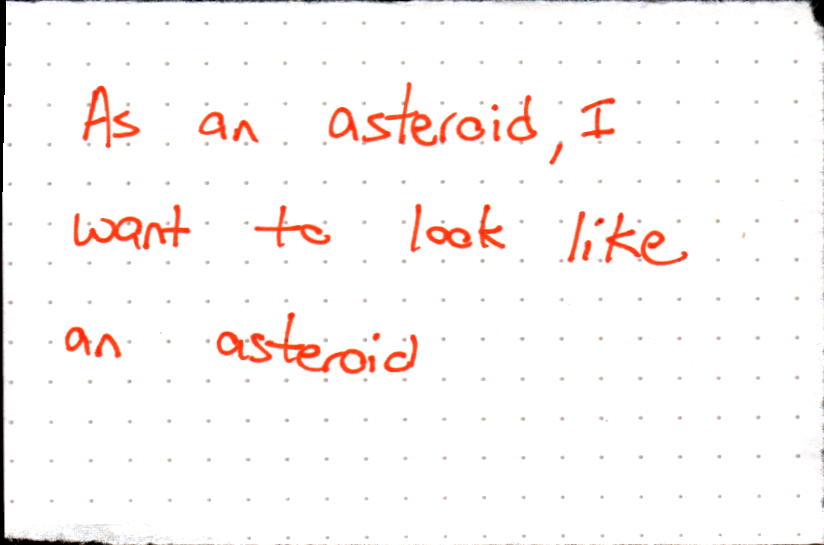 As an asteroid, I
want to look like
an asteroid